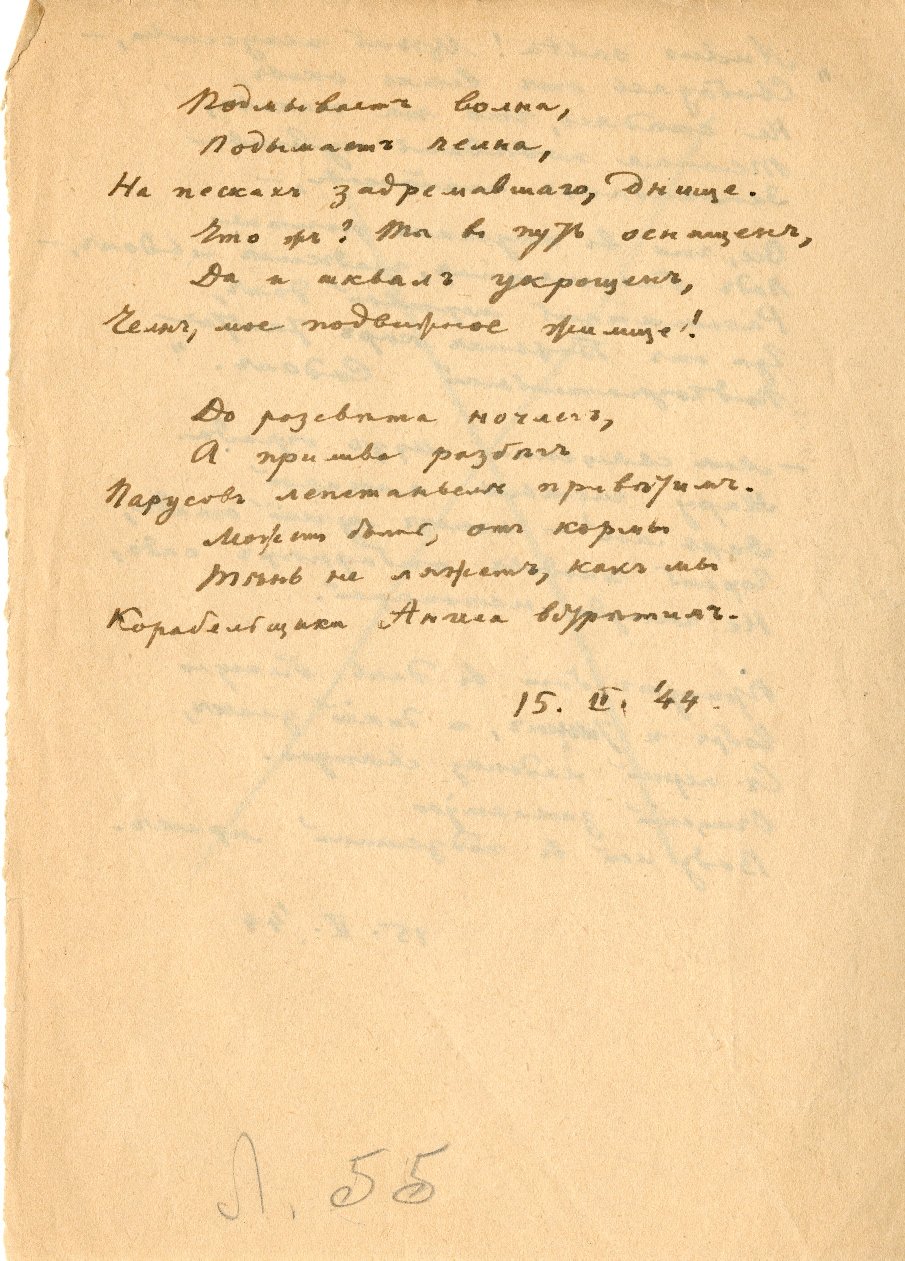 Подмываетъ волна,
Подымаетъ челна,
На пескахъ задремавшаго, днище.
Что жъ? Ты въ путь оснащенъ,
Да и шквалъ укрощенъ,
Челнъ, мое подвижное жилище!
До разсвѣта ночлегъ,
А прилива разбѣгъ
Парусовъ лепетаньемъ привѣтимъ.
Можетъ быть, отъ кормы
Тѣнь не ляжетъ, какъ мы
Корабельщика Ангела встрѣтимъ.
15. II. '44.
Л. 55